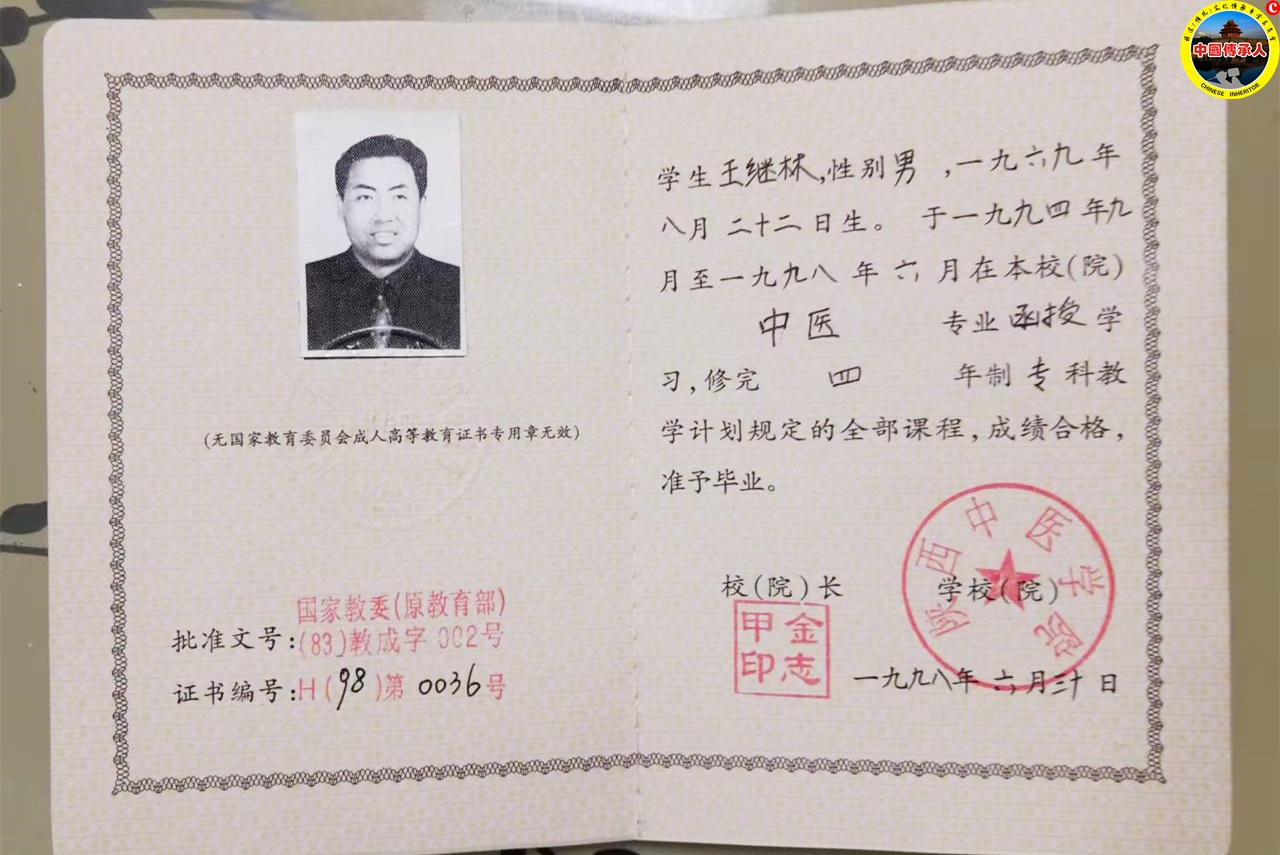 中國傳承人
CHINESE INHERITOR
(无国家教育委员会成人高等教育证书专用章无效)
国家教委(原教育部)
批准文号:(83)教成字 002号
证书编号:H(98)第 0036号
学生王继林,性别男,一九六九年
八月二十二日生。于一九九四年九
月至一九九八年六月在本校(院)
中医 专业函授学
习,修完 四 年制专科教
学计划规定的全部课程,成绩合格,
准予毕业。
校(院)长 学校(院)
金志
甲印
陕西中医学院
一九九八年六月三十日